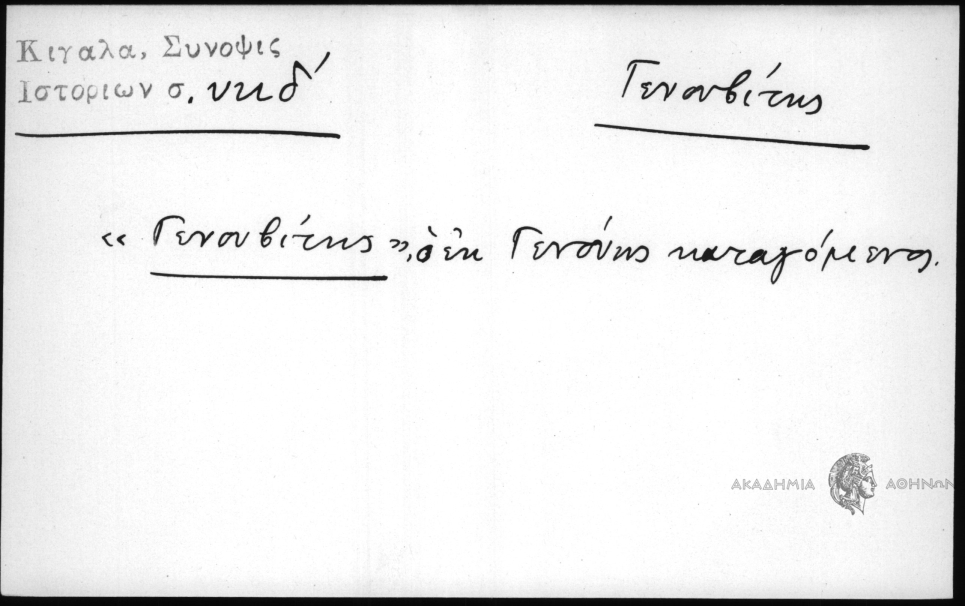 Κιγαλα, Συνοψις
Ιστοριων σ. υκδ΄
Γενουβίτης
« Γενουβίτης », ὁ ἐκ Γενούης καταγόμενος.
ΑΚΑΔΗΜΙΑ ΑΘΗΝΩΝ